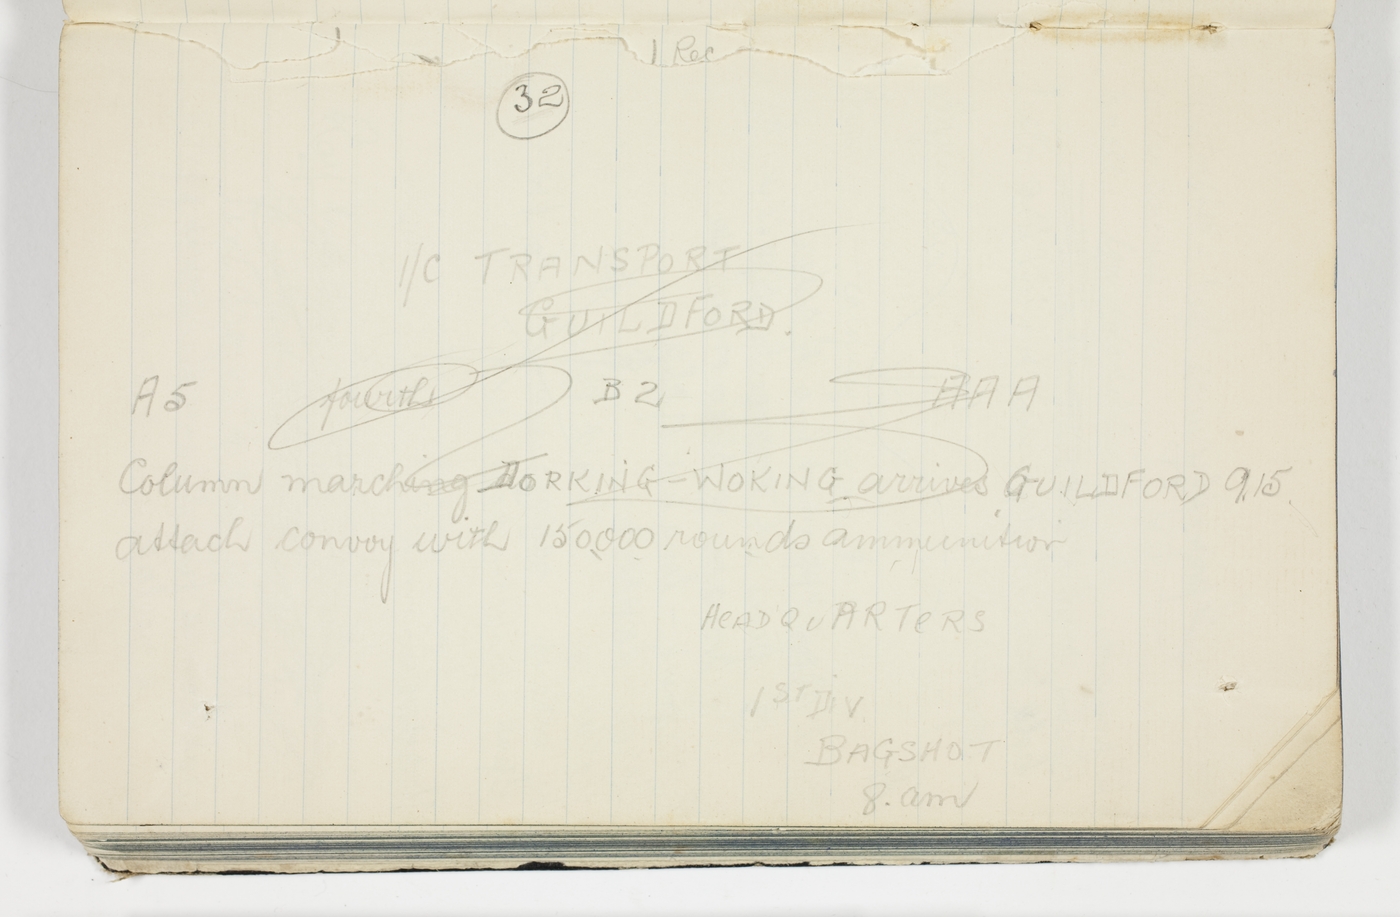 1 Rec
32
I/C TRANSPORT
GUILDFORD.
A5 fourth B2 AAA
Column marching DORKING-WOKING arrives GUILDFORD 9.15.
attach convoy with 150000 rounds ammunition
HEADQUARTERS
1ST DIV
BAGSHOT
8. am